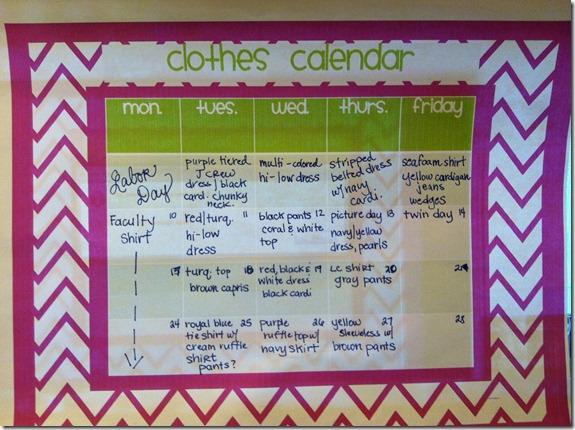 clothes calendar
mon. tues. wed. thurs. friday
Labor
Day
purple tiered
J CREW
dress/black
card. chunky
neck.
multi-colored
hi-low dress
stripped
belted dress
w/navy
cardi.
seafoam shirt
yellow cardigan
jeans
wedges
Faculty 10
Shirt
red/turq. 11
hi-low
dress
black pants 12
coral & white
top
picture day 13
navy/yellow
dress, pearls
twin day 14
17
turq. top 18
brown capris
red, black & 19
white dress
black cardi
shirt 20
gray pants
21
24
royal blue 25
tie shirt w/
cream ruffle
shirt
pants?
purple 26
ruffle top w/
navy skirt
yellow 27
sleeveless w/
brown pants
28